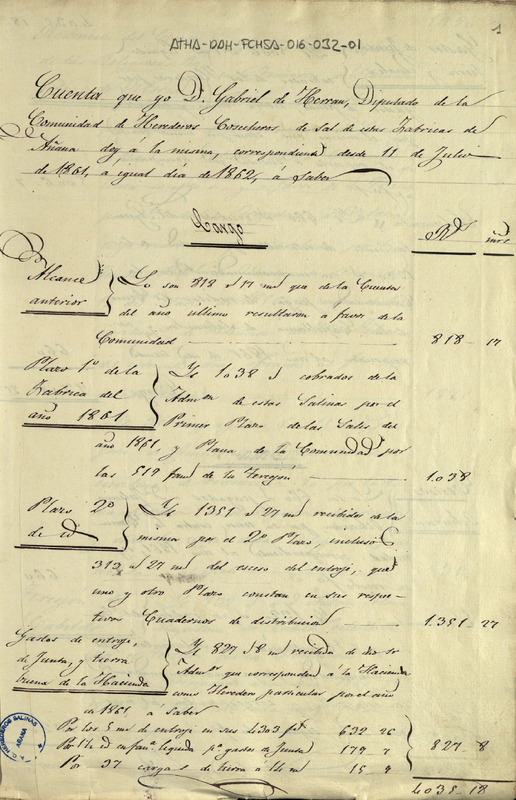 1
ATHA-DAH-FCHSA-016-032-01
Cuenta que yo D. Gabriel de Herran, Diputado de la
Comunidad de Herederos Cosecheros de sal de estas Fabricas de
Añana doy á la misma, correspondiente desde 11 de Julio
de 1861, á igual dia de 1862, á saber
Cargo
Rs mrs
Alcance
anterior
Lo son 818 rs 17 ms que de la Cuenta
del año ultimo resultaron a favor de la
Comunidad 818 17
Plazo 1º de la
Fabrica del
año 1861
Yt 1038 rs cobrados de la
Admon de estas Salinas por el
Primer Plazo de las Sales del
año 1861 y Plana de la Comunidad por
las 519 fans de la 1.038
Plazo 2º
de id
Yt 1351 rs 27 ms recibidos de la
misma por el 2º Plazo, inclusos
313 rs 27 ms del esceso del entroje, que
uno y otro Plazo constan en sus respec-
tivos Cuadernos de distribucion 1.351 27
Gastos de entroje,
de Junta, y tierra
buena de la Hacienda
Yt 827 rs 8 ms recibidos de dio sr
Admor que corresponden á la Hacienda
como Heredero particular por el año
de 1861 á Saber
Por los 5 ms de entroje en sus 4303 fs 632 26
Por 1½ id en fana pa gastos de Junta 179 7
Por 37 cargas de tierra á 14 ms 15 9
827 8
4035 18
HEREDEROS SALINAS
AÑANA